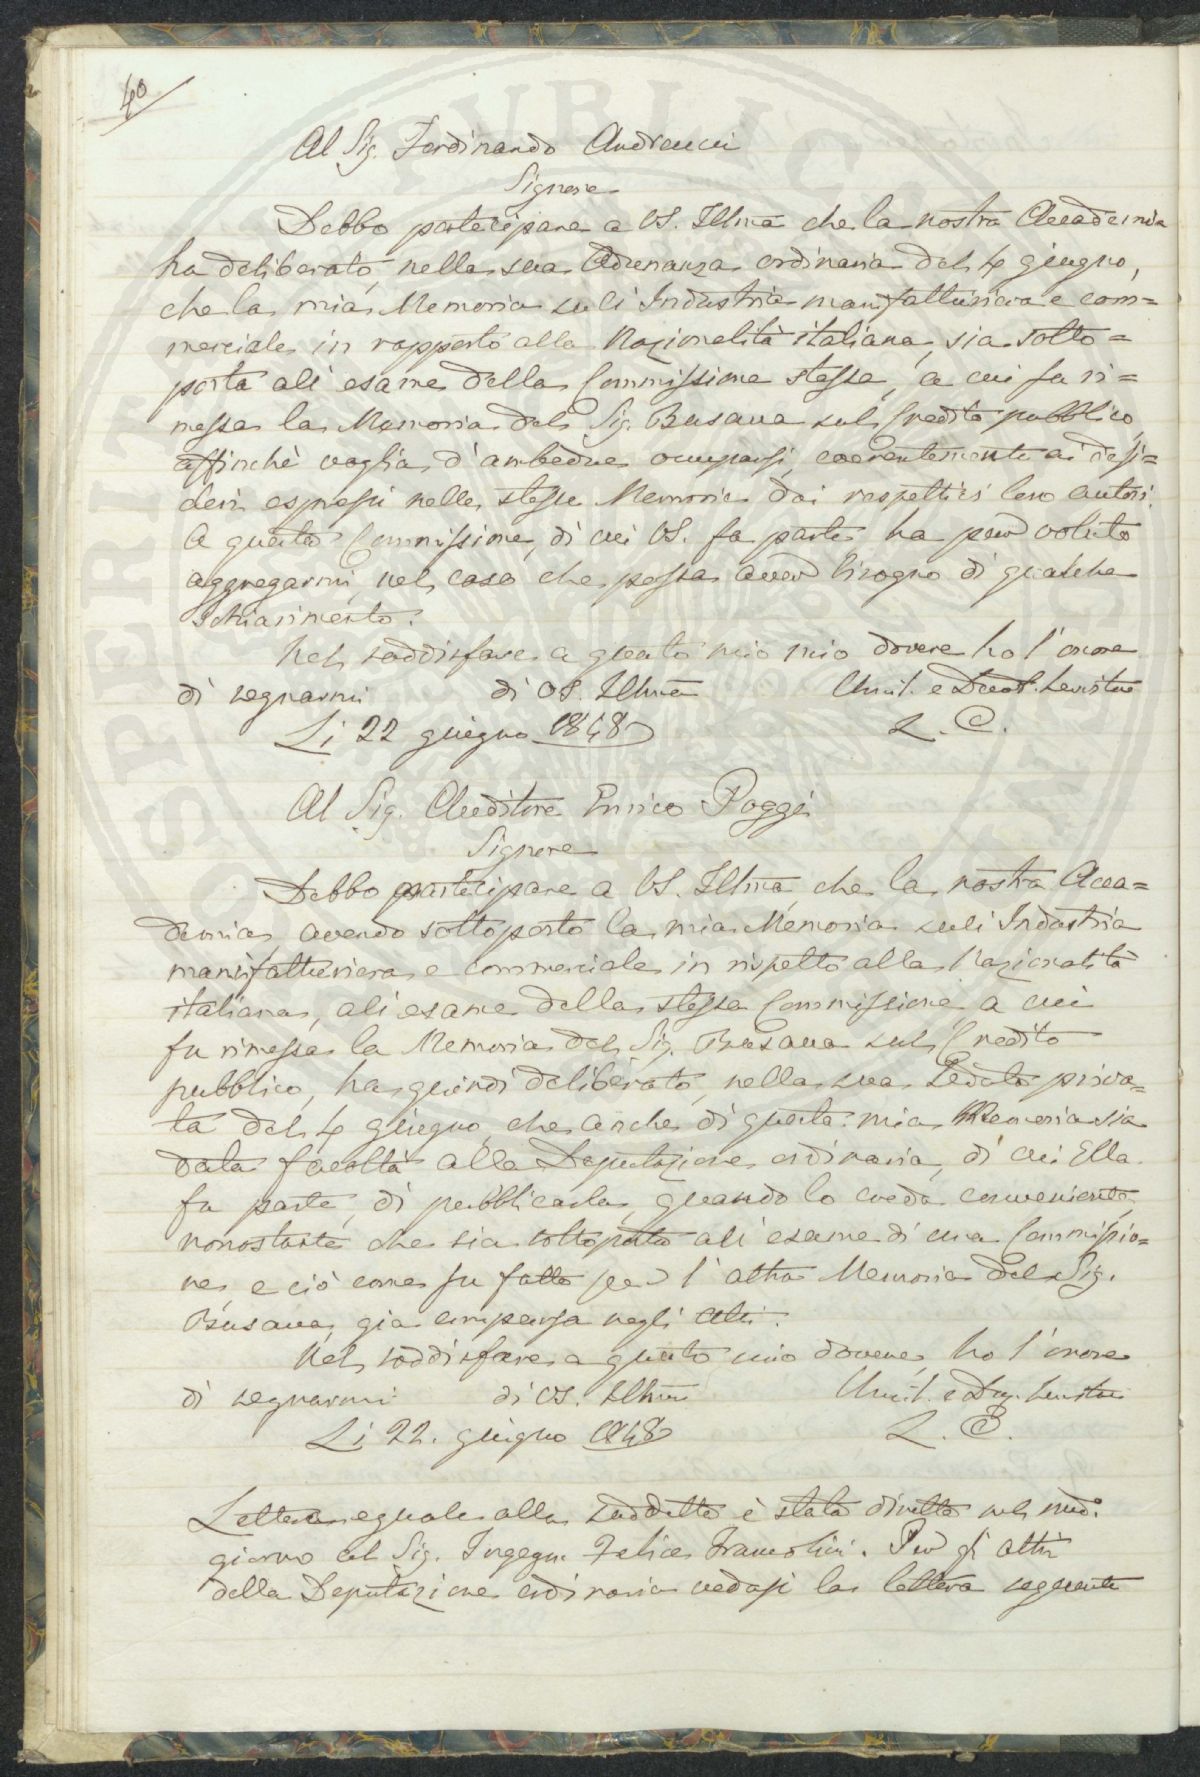 40
Al Sig. Ferdinando Andreucci
Signore
Debbo partecipare a VS. Illma che la nostra Accademia
ha deliberato, nella sua Adunanza ordinaria del 4 giugno,
che la mia Memoria sull'Industria manifatturiera e com=
merciale in rapporto alla Nazionalità italiana, sia sotto=
posta all'esame della Commissione stessa, a cui fu ri=
messa la Memoria del Sig. Busana sul Credito pubblico,
affinchè voglia d'ambedue occuparsi, coerentemente ai desi=
deri espressi nelle stesse Memorie dai respettivi loro autori.
A questa Commissione, di cui VS. fa parte ha però voluto
aggregarmi, nel caso che possa aver bisogno di qualche
schiarimento.
Nel soddisfare a questo mio mio dovere ho l'onore
di segnarmi di VS. Illma Umil. e Devot. Servitore
Li 22 giugno 1848 L. C.
Al Sig. Auditore Enrico Poggi
Signore
Debbo partecipare a VS. Illma, che la nostra Acca=
demia, avendo sottoposto la mia Memoria sull'Industria
manifatturiera e commerciale in rispetto alla Nazionalità
italiana, all'esame della stessa Commissione a cui
fu rimessa la Memoria del Sig. Busana sul Credito
pubblico, ha quindi deliberato, nella sua Seduta priva=
ta del 4 giugno, che anche di questa mia Memoria sia
data facoltà alla Deputazione ordinaria, di cui Ella
fa parte, di pubblicarla, quando lo creda conveniente,
nonostante che sia sottoposta all'esame di una Commissio=
ne, e ciò come fu fatto per l'altra Memoria del Sig.
Busana, già comparsa negli Atti.
Nel soddisfare a questo mio dovere, ho l'onore
di segnarmi di VS. Illma Umil. e Dev. Servitore
Li 22. giugno 1848 L. C.
Lettera eguale alla suddetta è stata diretta nel med.o
giorno al Sig. Ingegn. Felice Francolini. Per gli altri
della Deputazione ordinaria vedasi la lettera seguente
PROSPERITATI PUBLICAE